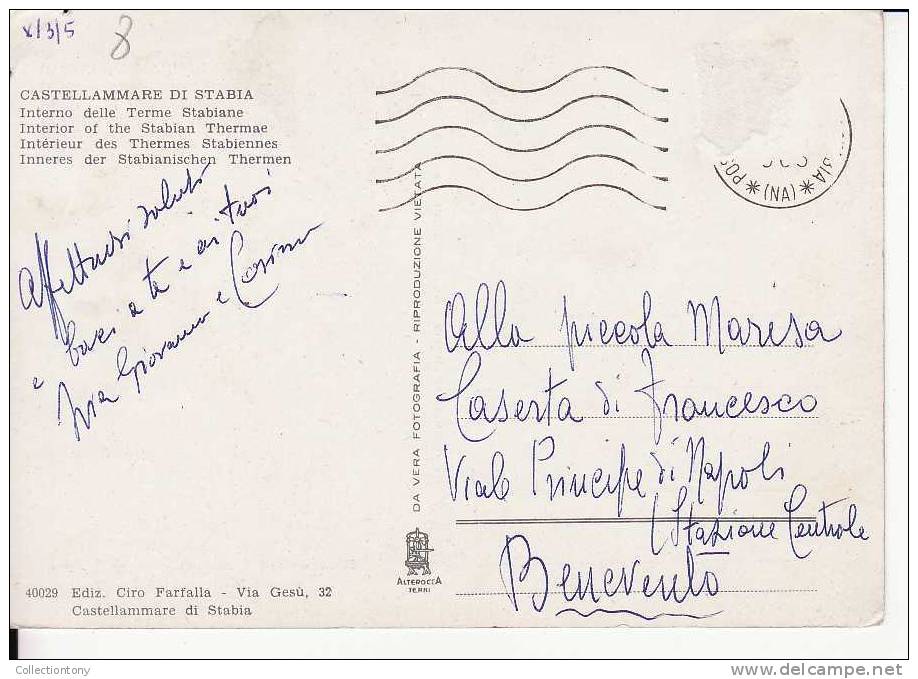 x/3/5
8
CASTELLAMMARE DI STABIA
Interno delle Terme Stabiane
Interior of the Stabian Thermae
Intérieur des Thermes Stabiennes
Inneres der Stabianischen Thermen
Affettuosi saluti
e baci a te e ai tuoi
Giovanna e Cosimo
DA VERA FOTOGRAFIA - RIPRODUZIONE VIETATA
(NA)
Alla piccola Marisa
Caserta di Francesco
Viale Principe di Napoli
(Stazione Centrale
Benevento
ALTEROCCA
TERNI
40029 Ediz. Ciro Farfalla - Via Gesù, 32
Castellammare di Stabia
Collectiontony
www.delcampe.net